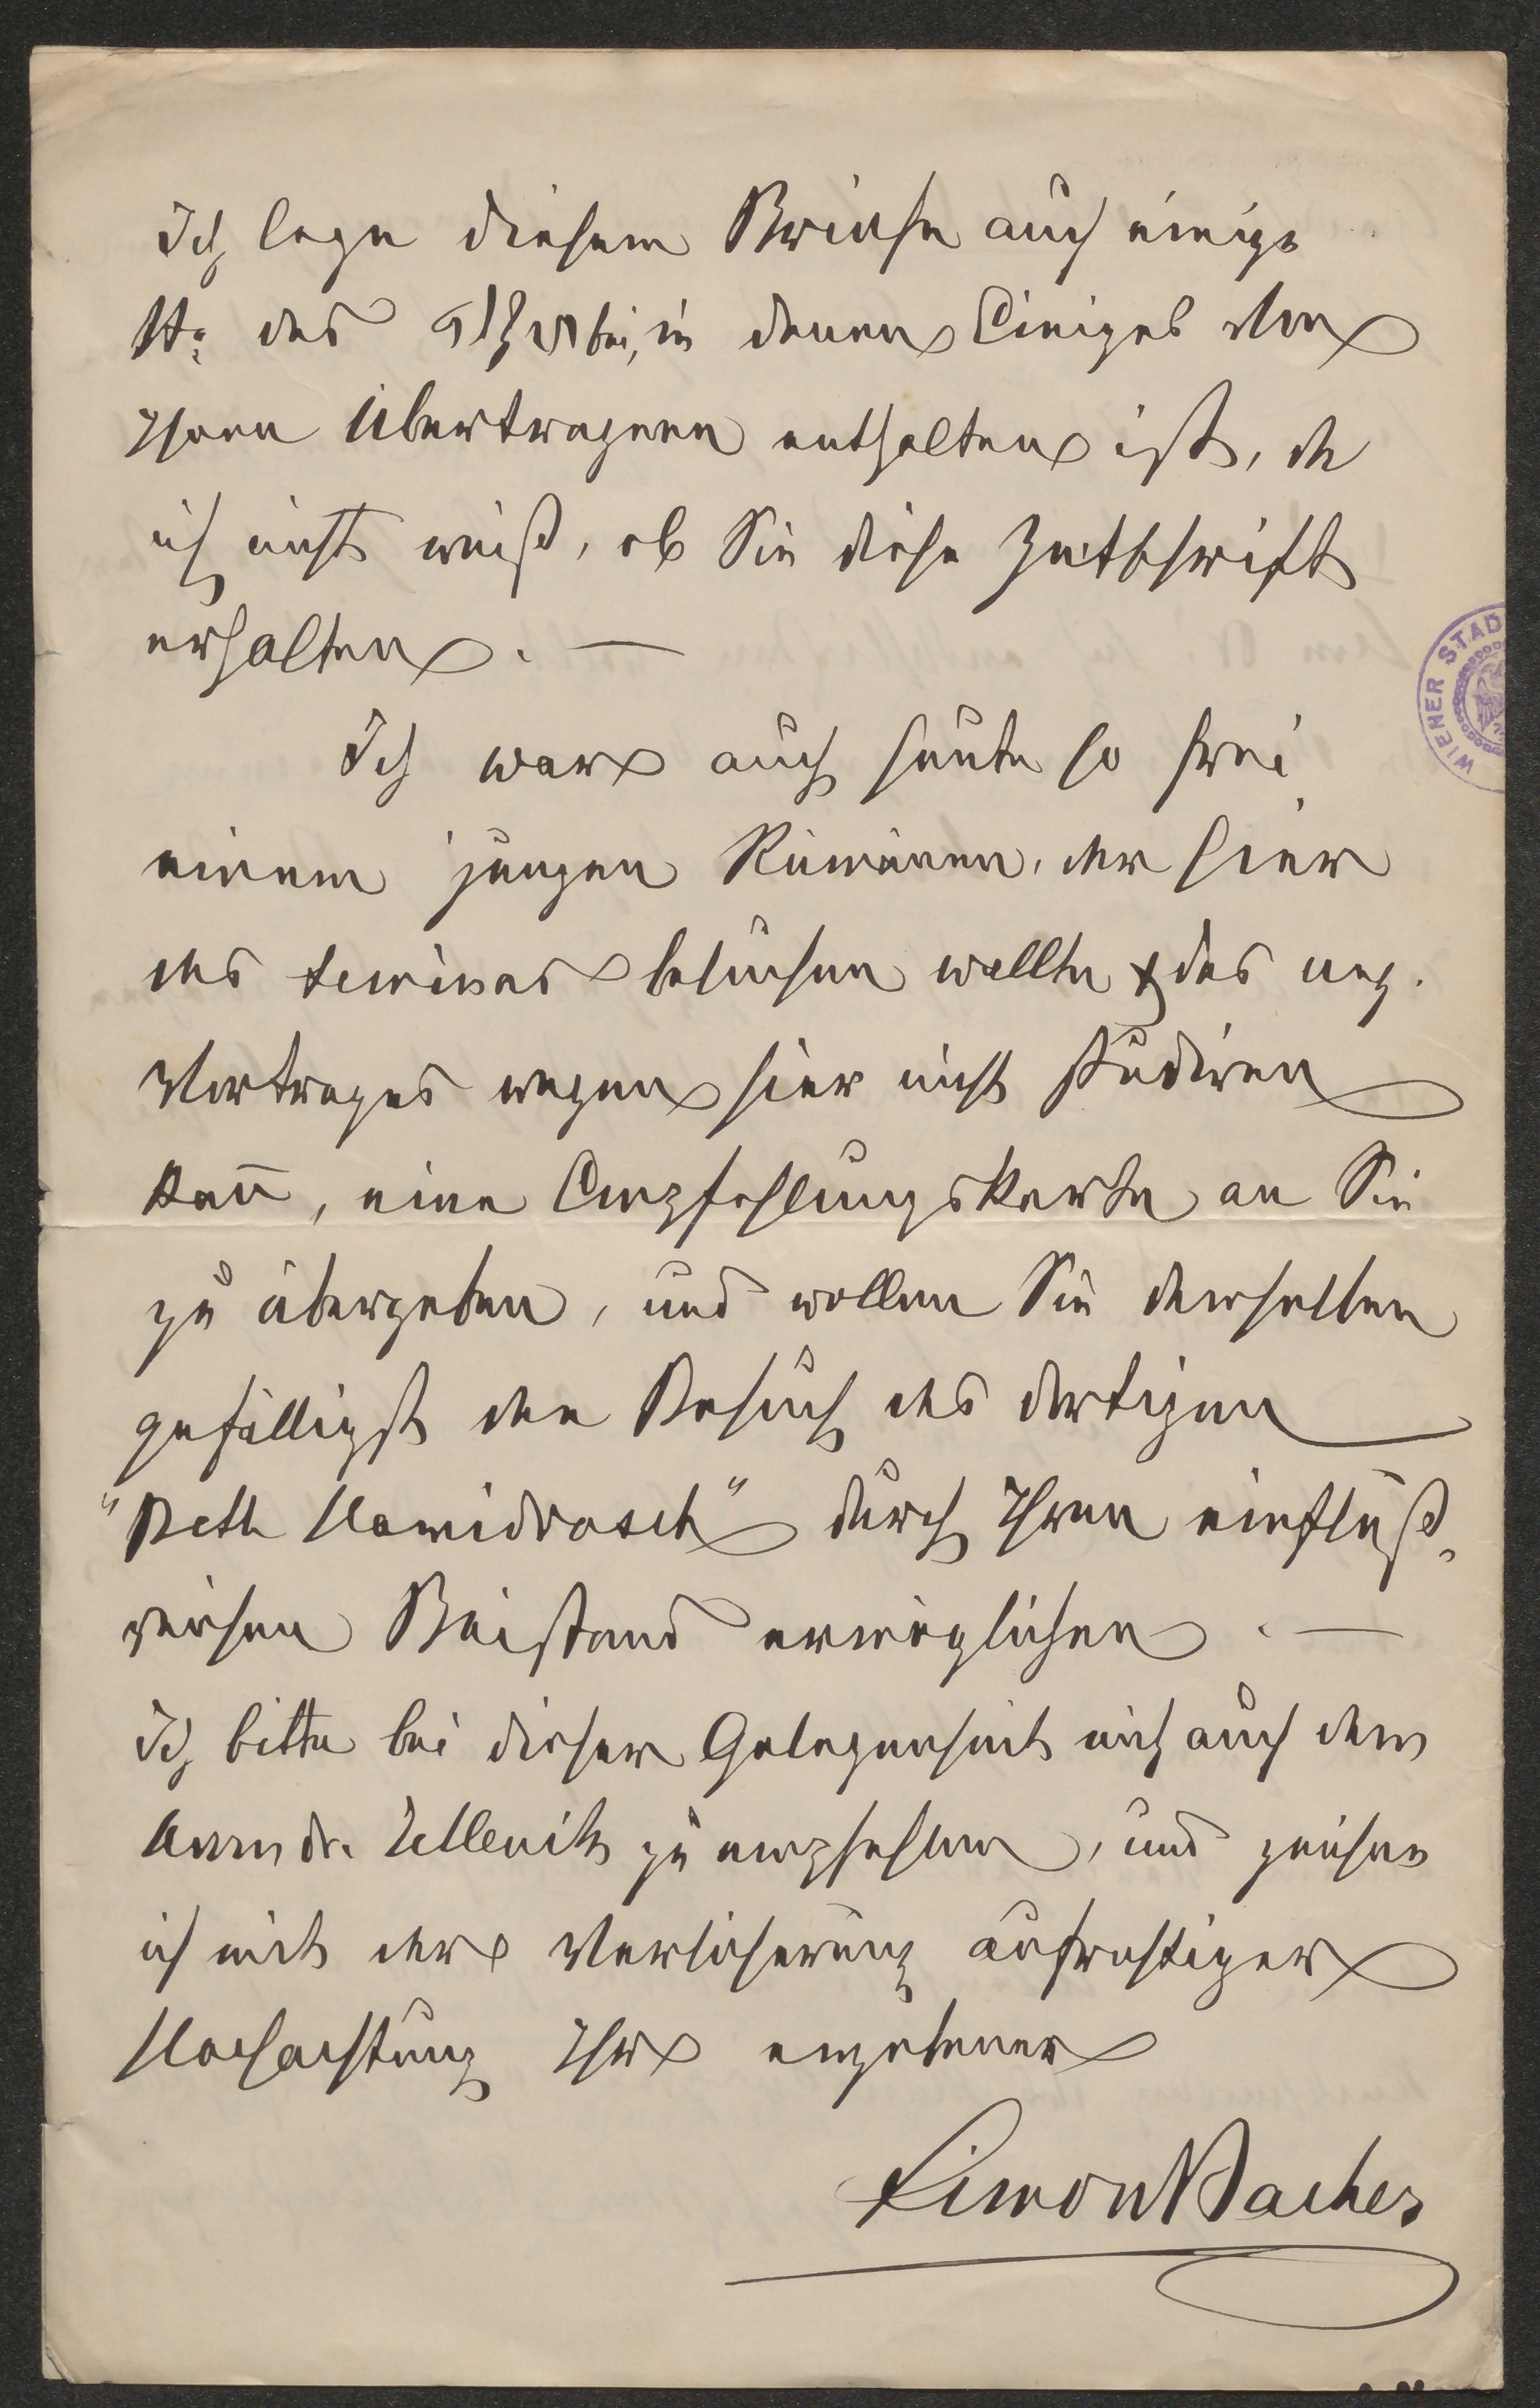 Ich lege diesem Briefe auch einige
No. des bei, in denen Einiges von
Ihnen Übertragenen enthalten ist, da
ich nicht weiß, ob Sie diese Zeitschrift
erhalten. —
Ich war auch heute so frei
einem jungen Rumänen, der hier
das Seminar besuchen wollte & das ung.
Vortrages wegen hier nicht studiren
kann̄, eine Empfehlungskarte an Sie
zu übergeben, und wollen Sie demselben
gefälligst den Besuch des dortigen
"Beth Hamidrasch" durch Ihren einfluß-
reichen Beistand ermöglichen. —
Ich bitte bei dieser Gelegenheit mich auch dem
Herrn Dr. Jellenik zu empfehlen, und zeichne
ich mit der Versicherung aufrichtiger
Hochachtung Ihr ergebener
Simon Bacher
WIENER STAD